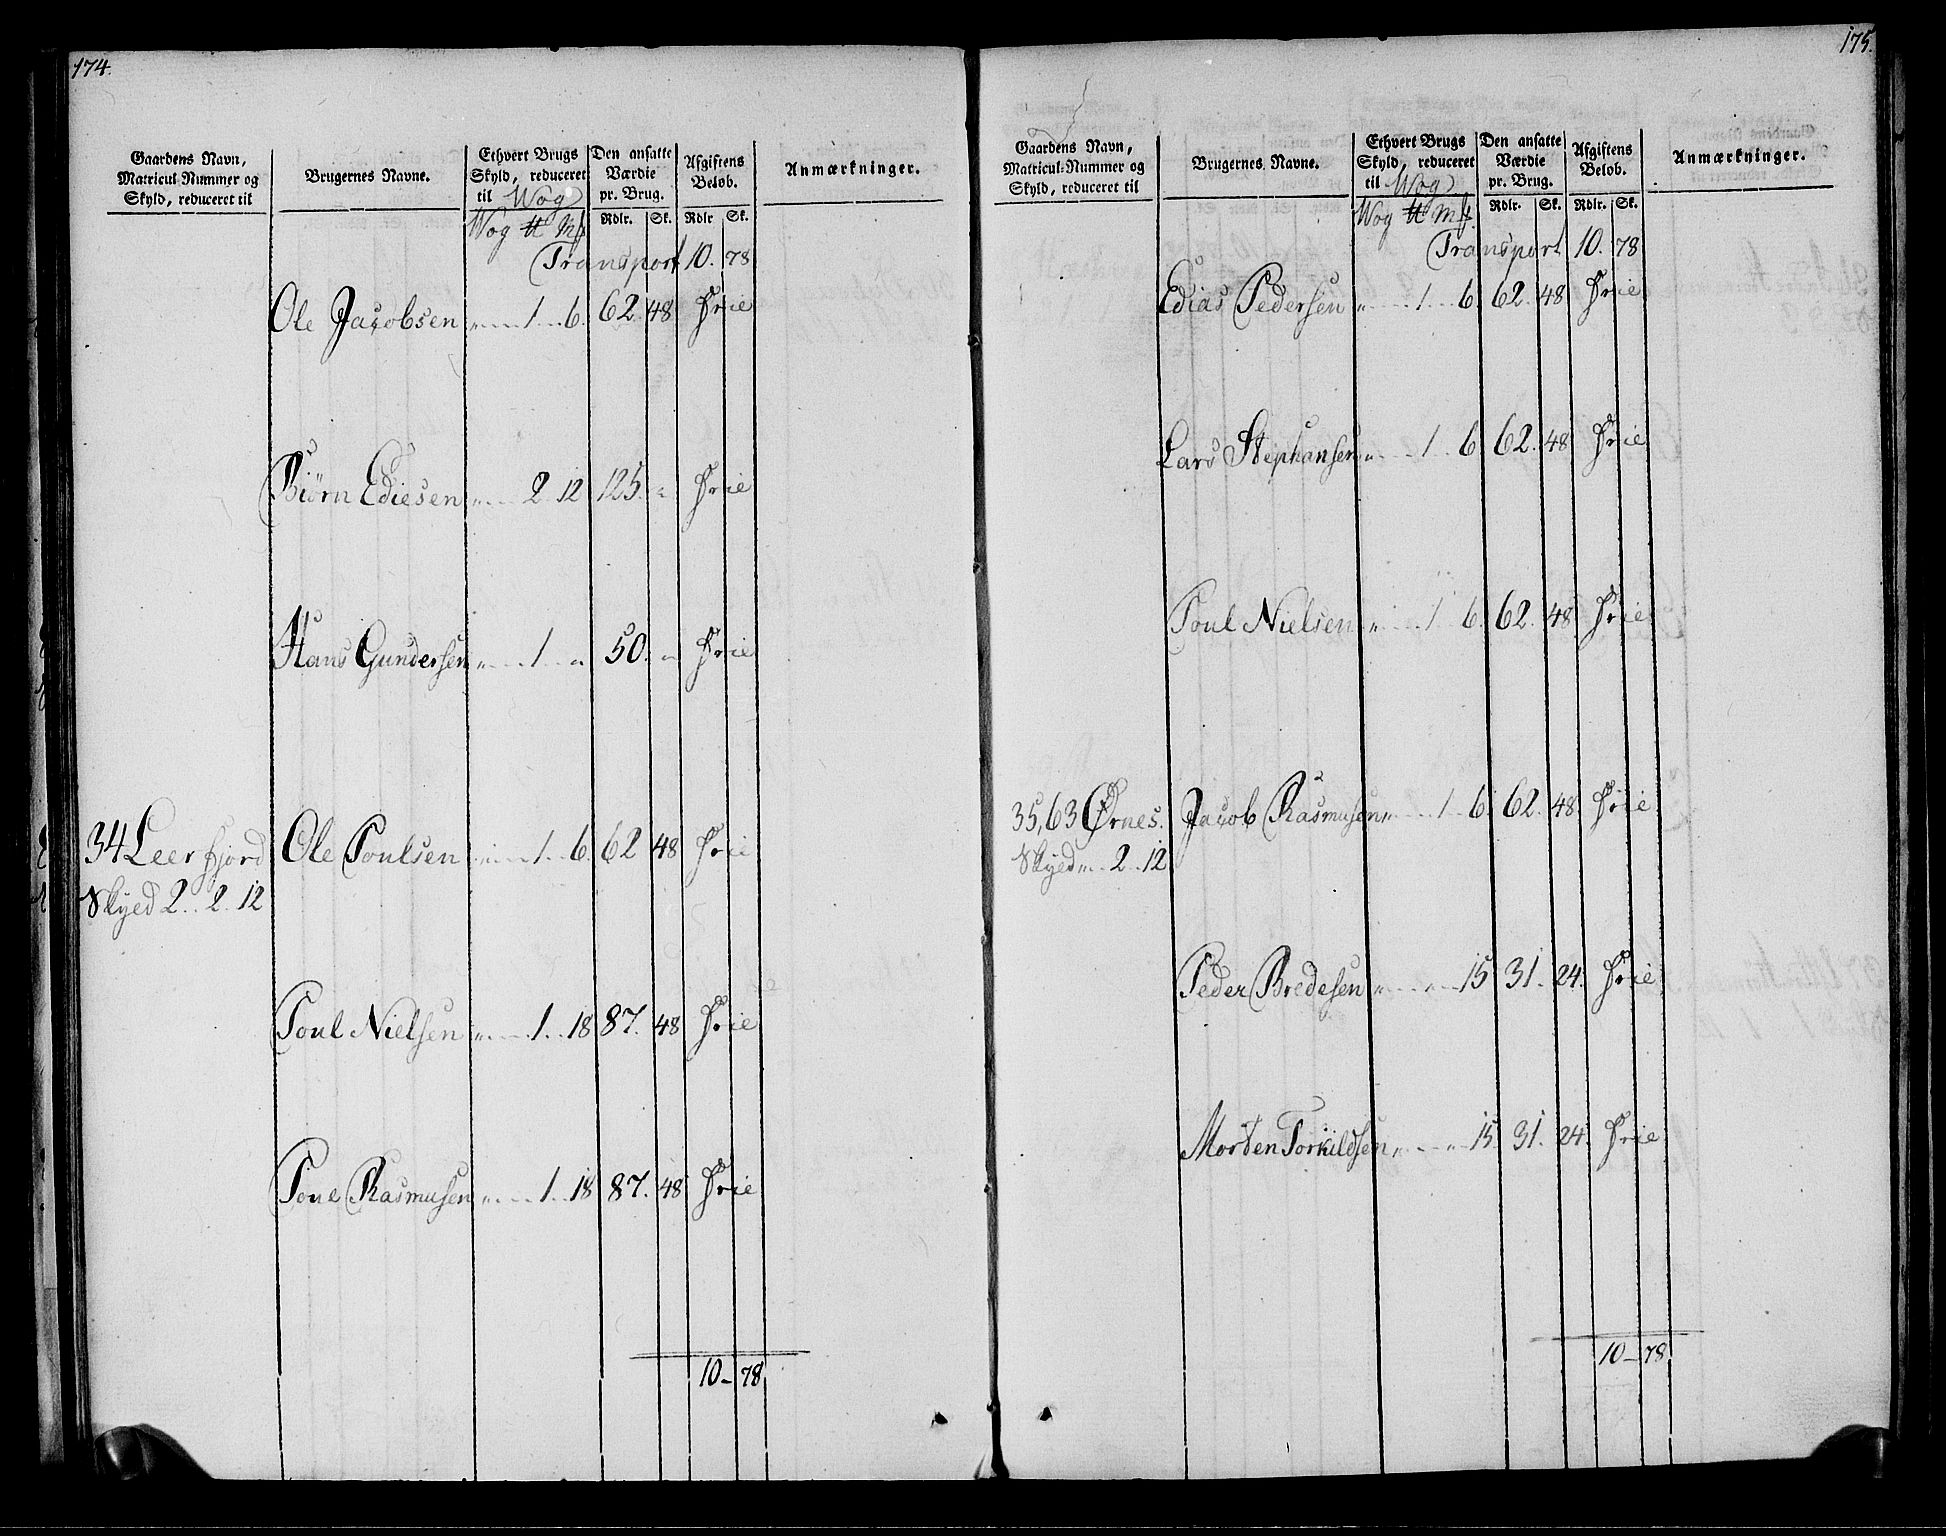 174.
Gaardens Navn, Matricul-Nummer og Skyld, reduceret til
Brugernes Navne.
Ethvert Brugs Skyld, reduceret til Wog
Den ansatte Værdie pr. Brug.
Afgiftens Beløb.
Anmærkninger.
Wog ℔ Mk Rdlr. Sk. Rdlr Sk.
Transport 10. 78
Ole Jacobsen „ 1 6. 62. 48 Frie
Biörn Ediesen „ 2 12 125. „ Frie
Hans Gundersen „ 1 „ 50. „ Frie
34 Leerfjord Ole Poulsen „ 1 6. 62 48 Frie
Skyld 2 2 12
Poul Nielsen „ 1 18 87. 48 Frie
Tone Rasmusen „ 1 18 87. 48 Frie
10 – 78
175.
Gaardens Navn, Matricul-Nummer og Skyld, reduceret til
Brugernes Navne.
Ethvert Brugs Skyld, reduceret til Wog
Den ansatte Værdie pr. Brug.
Afgiftens Beløb.
Anmærkninger.
Wog ℔ Mk Rdlr. Sk. Rdlr. Sk.
Transport 10. 78
Edias Pedersen „ 1 6. 62. 48 Frie
Lars Stephansen „ 1 6 62. 48 Frie
Poul Nielsen „ 1 6. 62. 48 Frie
35, 63 Ørnes. Jacob Rasmusen „ 1 6. 62. 48 Frie
Skyld „ 2 12
Peder Bredesen „ „ 15 31. 24. Frie
Morten Torkildsen „ „ 15 31. 24. Frie
10 – 78